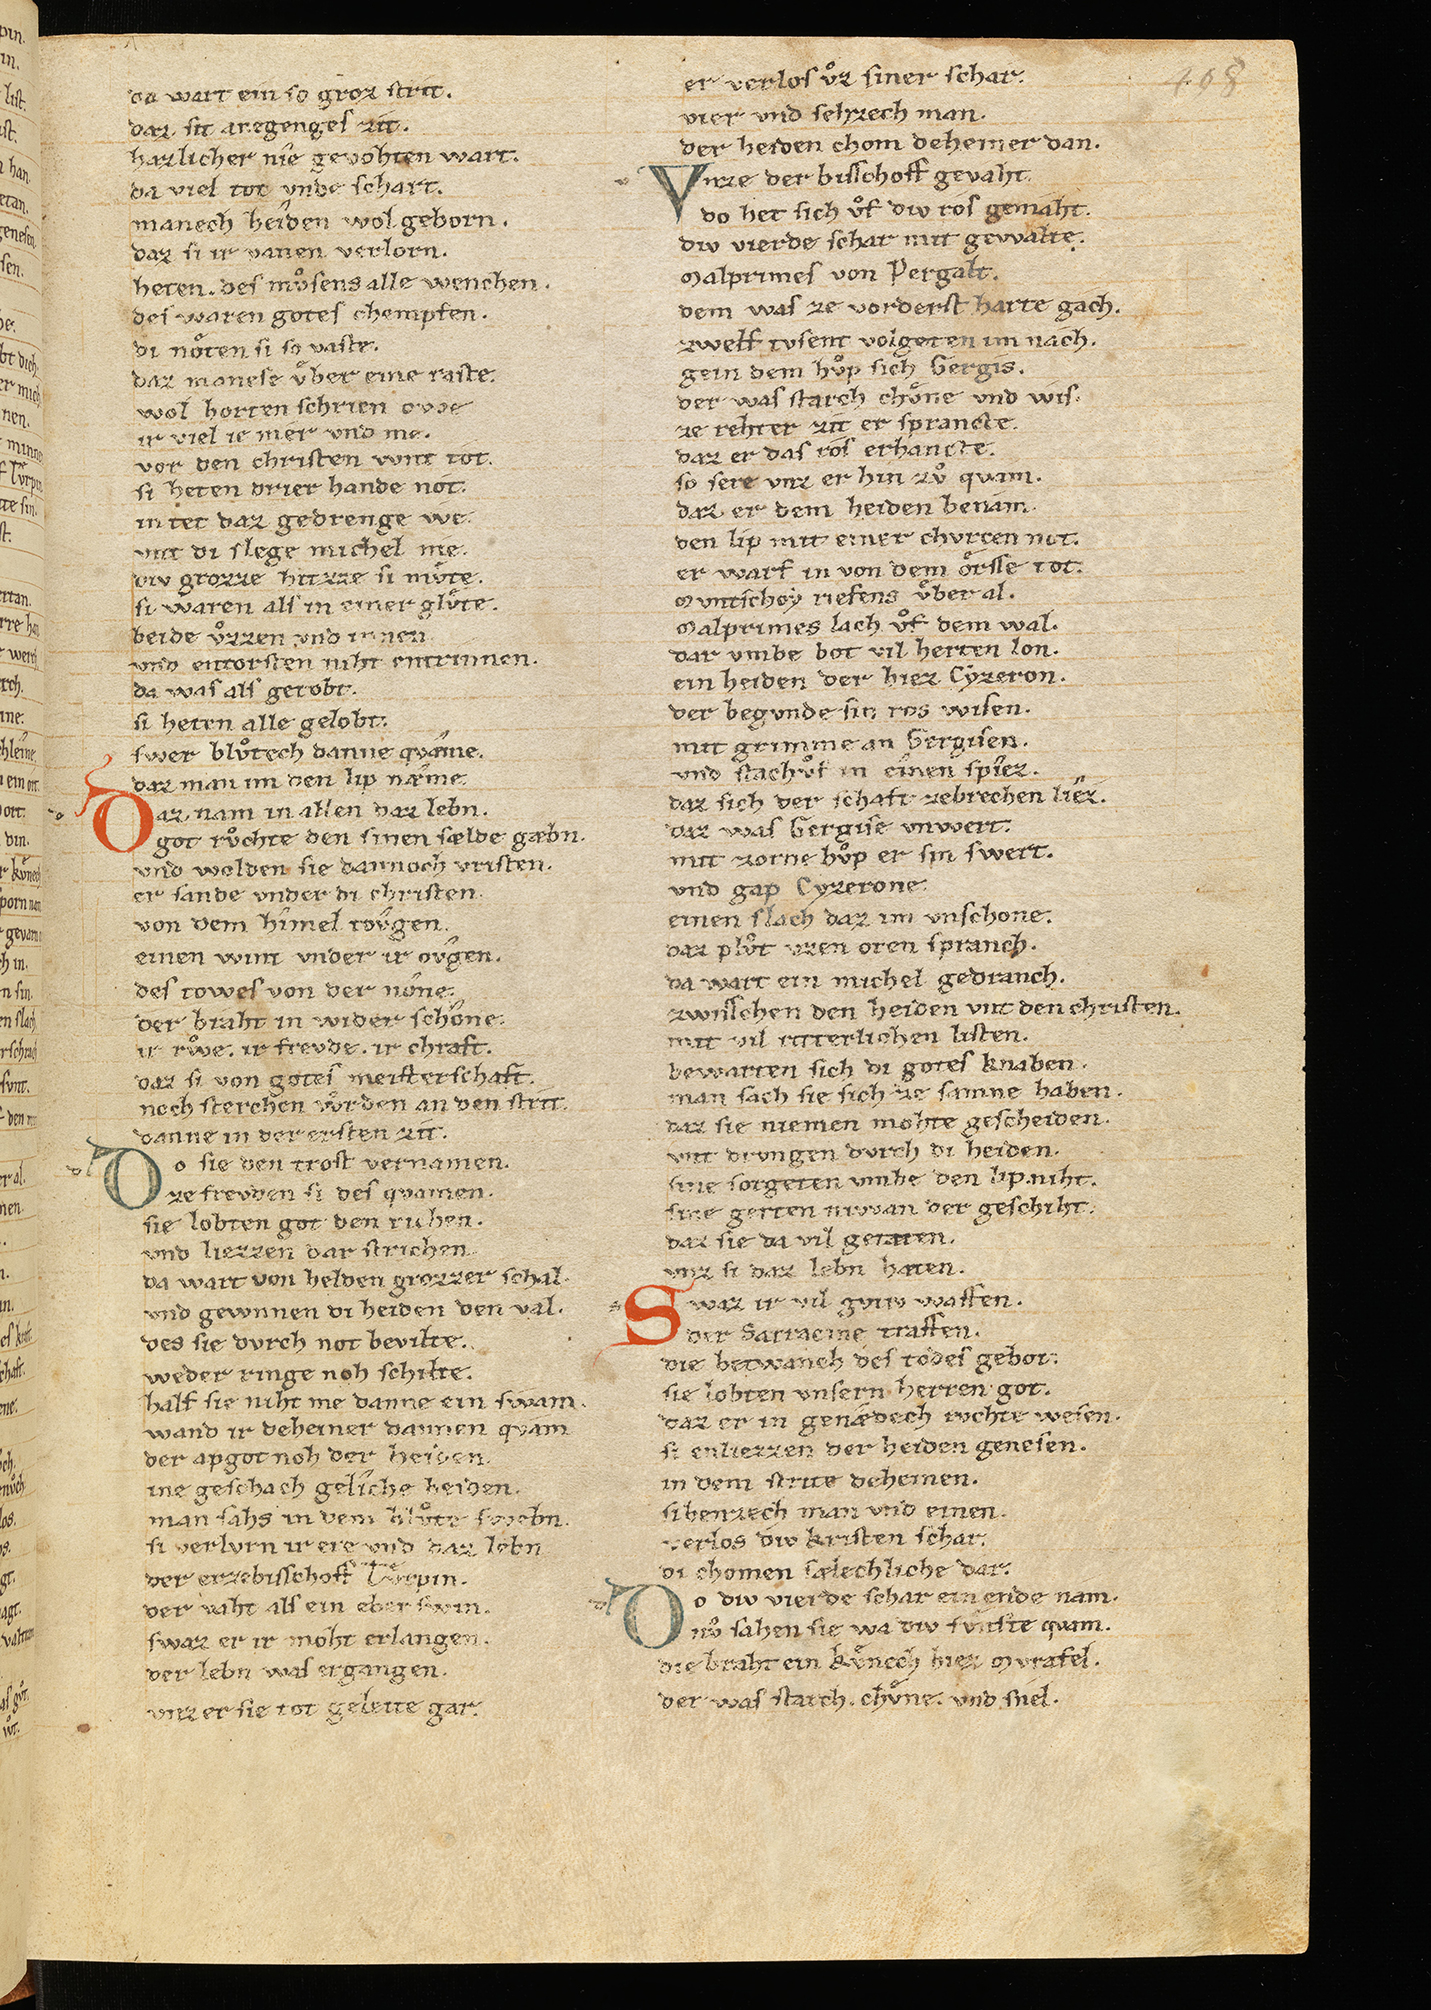 da wart ein so groz strit.
daz sit anegenges zit.
harlicher nîe gevohten wart.
da viel tot vnde schart.
manech heiden wol geborn.
daz si ir vanen verlorn.
heten. des mvͦsens alle wenchen.
des waren gotes chempfen.
di noͤten si so vaste.
daz manese vͤber eine raste.
wol horten schrien owe
ir viel ie mer vnd me.
vor den christen wnt tot.
si heten drier hande not.
in tet daz gedrenge we.
vnt di slege michel me.
div grozze hitzze si mvͦte.
si waren als in einer glvͦte.
beide vͦzzen vnd innen
vnd entorsten niht entrinnen.
da was als getobt.
si heten alle gelobt.
swer blvͦtech danne quæme.
daz man im den lip næme.
Daz nam in allen daz lebn.
got rvͦchte den sinen sælde gæbn.
vnd wolden sie dannoch vristen.
er sande vnder di christen.
von dem himel tovgen.
einen wint vnder ir ovgen.
des towes von der nône.
der braht in wider schône.
ir rvͦwe. ir frevde. ir chraft.
daz si von gotes meisterschaft.
noch sterchen wͦrden an den strit.
danne in der ersten zit.
Do sie den trost vernamen.
ze frevden si des quamen.
sie lobten got den richen.
vnd liezzen dar strichen.
da wart von helden grozzer schal.
vnd gewnnen di heiden den val.
des sie dvrch not bevilte.
weder ringe noh schilte.
half sie niht me danne ein swam.
wand ir deheiner dannen quam
der apgot noh der heiden.
ine geschach geliche beiden.
man sahs in dem blvͦte swebn.
si verlvrn ir ere vnd daz lebn
der erzebisschoff Tvrpin.
der vaht als ein eber swin.
swaz er ir moht erlangen.
der lebn was ergangen.
vnz er sie tot geleite gar.
er verlos vͦz siner schar.
vier vnd sehzech man.
der heiden chom deheiner dan.
Vnze der bisschoff gevaht.
do het sich vͦf div ros gemaht.
div vierde schar mit gewalte.
Malprimes von Pergalt.
dem was ze vorderst harte gach.
zwelf tvsent volgeten im nach.
gein dem hvͦp sich Gergis.
der was starch chvͤne vnd wis.
ze rehter zit er sprancte.
daz er das ros erhancte.
so sere vnz er hin zvͦ quam.
daz er dem heiden benam.
den lip mit einer chvrcen not.
er warf in von dem orsse tot.
Mvntschoy riefens vͤber al.
Malprimes lach vͦf dem wal.
dar vmbe bot vil herten lon.
ein heiden der hiez Cyzeron.
der begvnde sin ros wisen.
mit grimme an Gergisen.
vnd stach vͦf in einen spiez.
daz sich der schaft zebrechen liez.
daz was Gergise vnwert.
mit zorne hvͦp er sin swert.
vnd gap Cyzerone.
einen slach daz im vnschone.
daz plvͦt vzen oren spranch.
da wart ein michel gedranch.
zwisschen den heiden vnt den christen.
mit vil ritterlichen listen.
bewarten sich di gotes knaben.
man sach sie sich ze samne haben.
daz sie niemen mohte gescheiden.
vnt drvngen dvrch di heiden.
sine sorgeten vmbe den lip niht.
sine gerten niwan der geschiht.
daz sie da vil getaten.
vnz si daz lebn haten.
Swaz ir vil gvͦtiv waffen.
der Sarracine traffen.
die betwanch des todes gebot.
sie lobten vnsern herren got.
daz er in genædech rvchte wesen.
si enliezzen der heiden genesen.
in dem strite deheinen.
sibenzech man vnd einen.
verlos div kristen schar.
di chomen sælechliche dar.
Do div vierde schar ein ende nam.
nvͦ sahen sie wa div fvnfte quam.
die braht ein kvͤnech hiez Mvrafel.
der was starch. chvͤne. vnd snel.